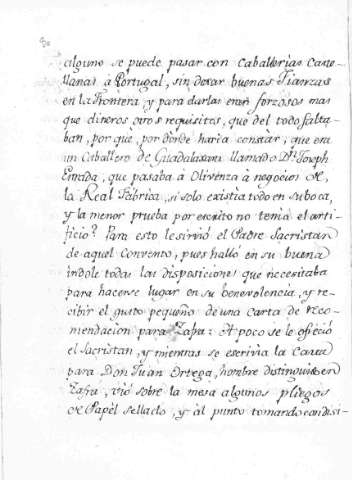 alguno se puede pasar con Caballerias Caste-
llanas à Portugal, sin dexar buenas Fianzas
en la Frontera; y para darlas eran forzosos mas
que dineros otros requisitos, que del todo falta-
ban, por què, por donde haria constar, que era
un Caballero de Guadalaxara llamado Dn. Joseph
que pasaba à Olivenza à negocios de
la Real Fabrica, si solo existia todo en su boca,
y la menor prueba por escrito no tenia el arti-
ficio? Para esto le sirviò el Padre Sacristan
de aquel Convento, pues hallò en su buena
indole todas las disposiciones que necesitaba
para hacerse lugar en su benevolencia, y re-
cibir el gusto pequeño de una Carta de reco-
mendacion para Zafra: A poco se le ofreciò
el Sacristan, y mientras se escrivia la Carta
para Don Juan Ortega, hombre distinguido en
Zafra, viò sobre la mesa algunos pliegos
de Papèl sellado, y al punto tomando con disi-